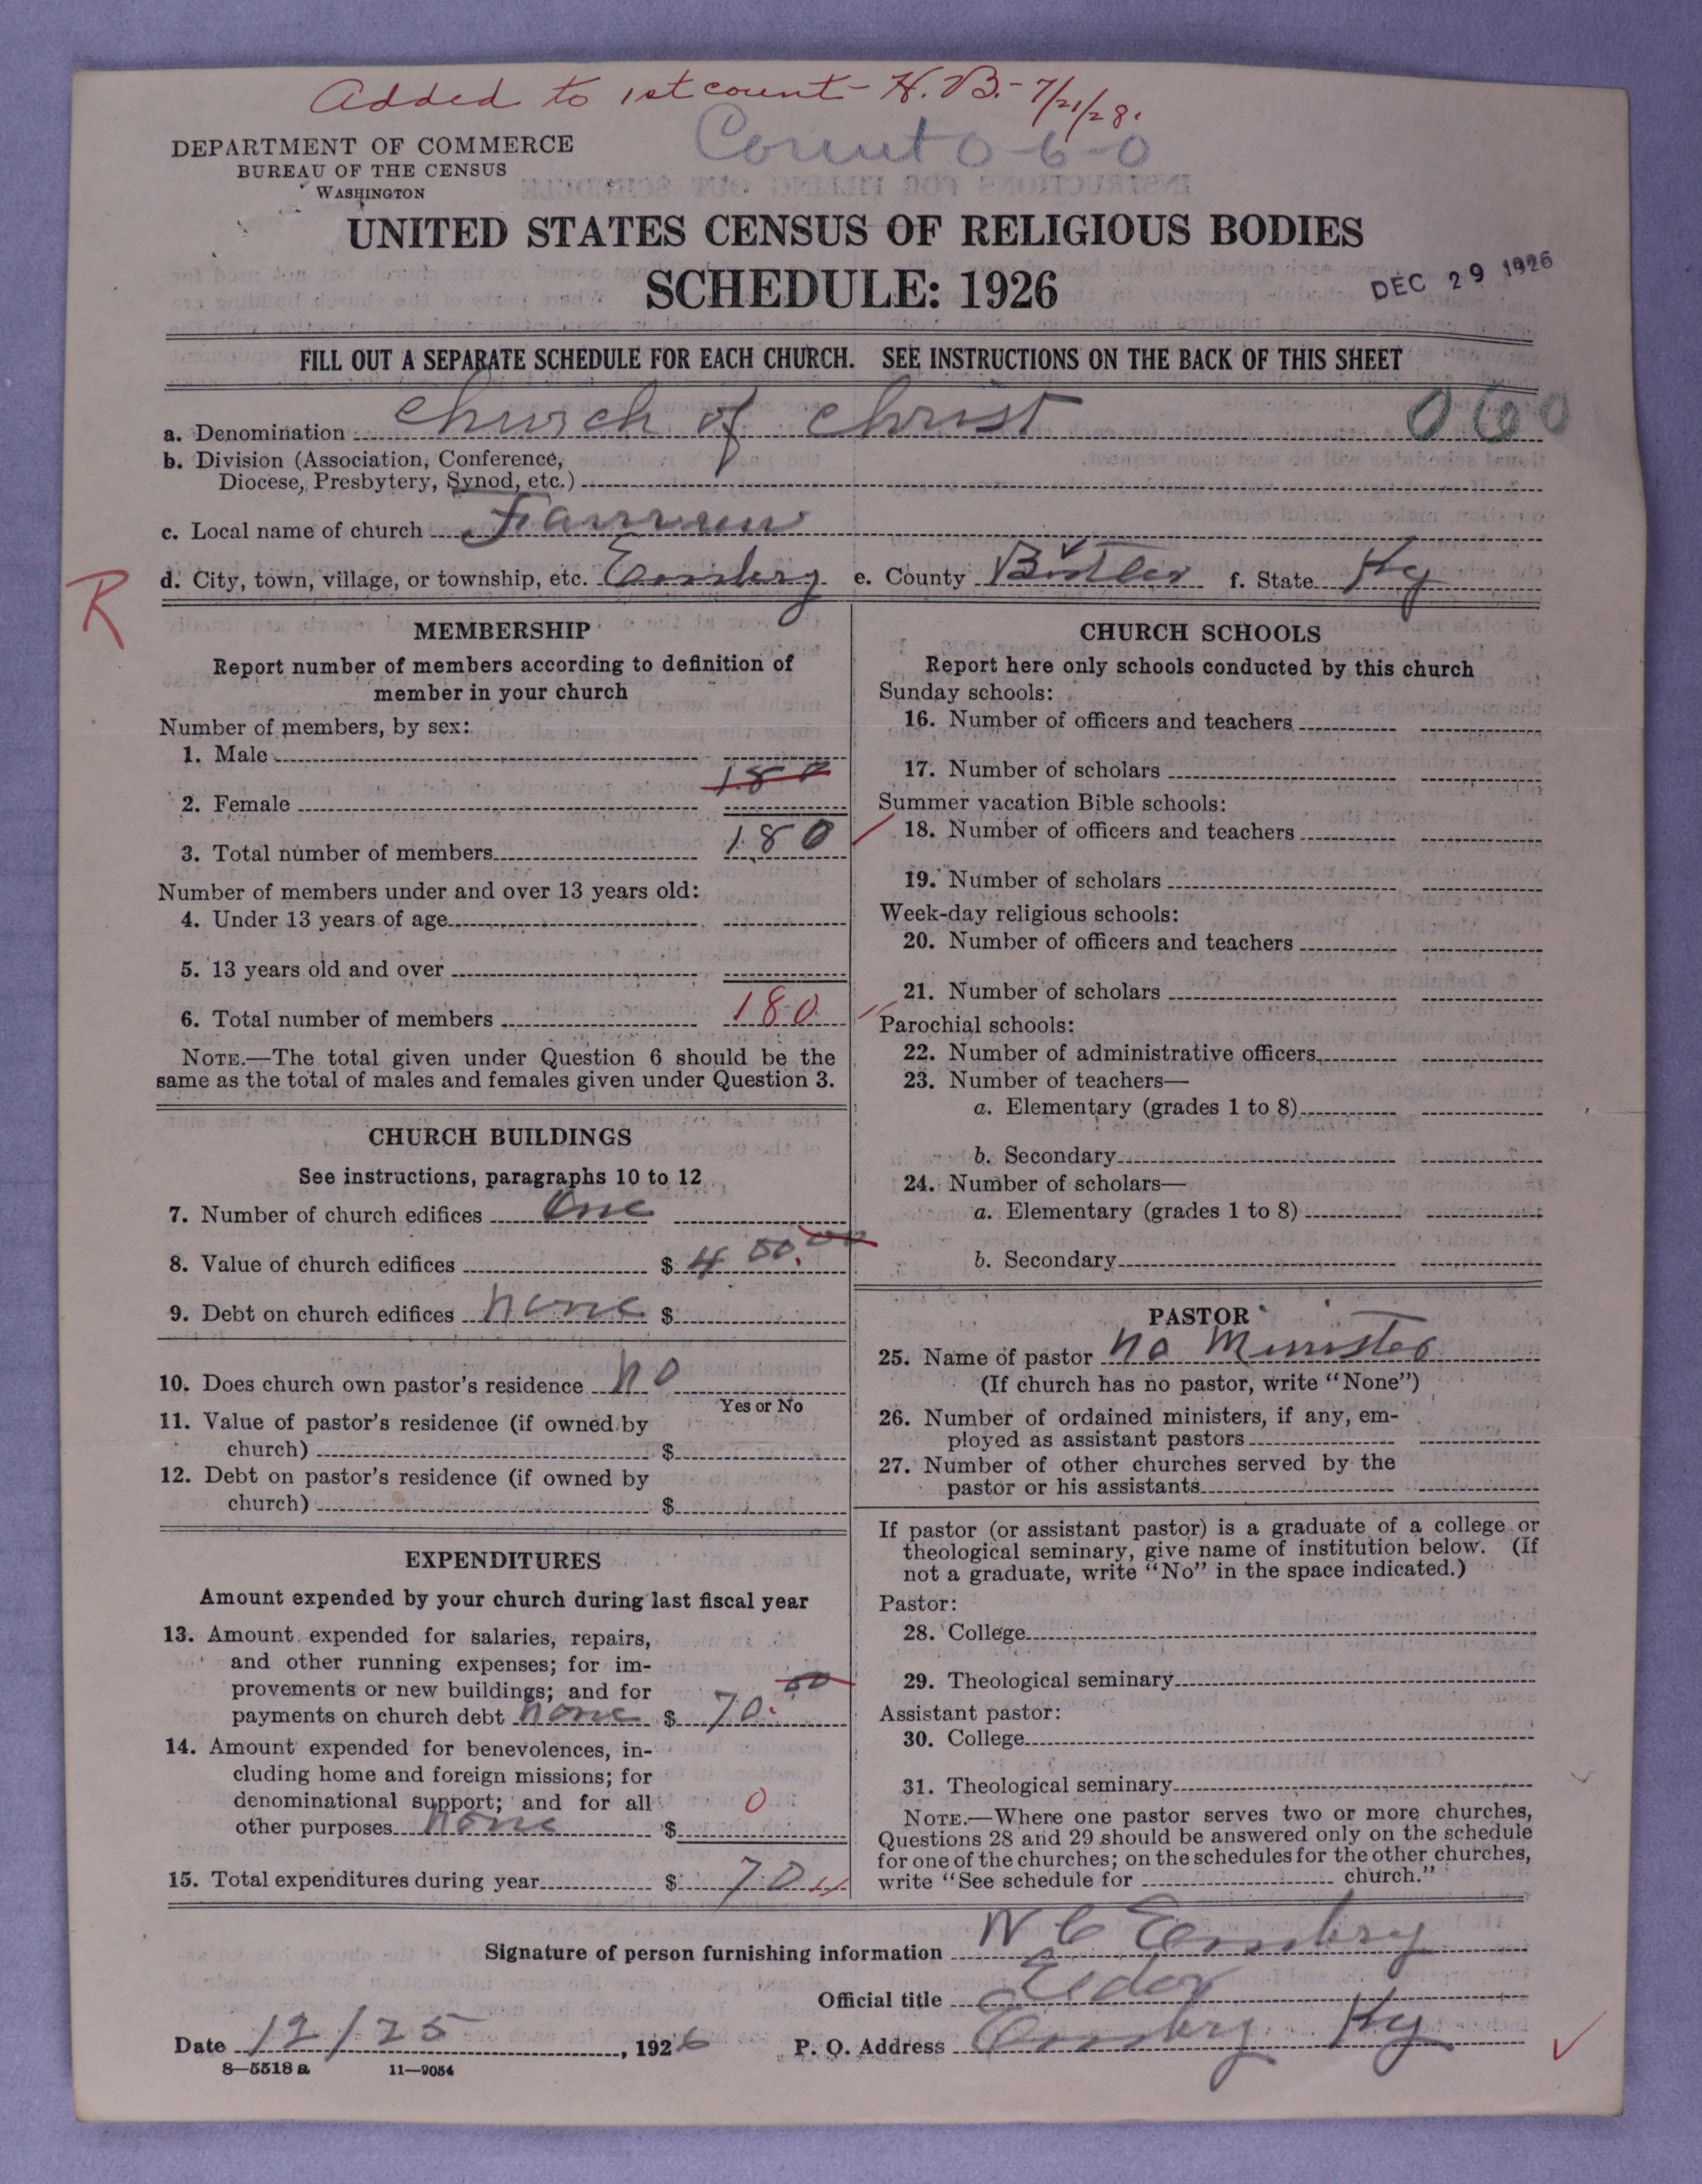 Added to 1st count - H. B. - 7/21/28.
Count 0-6-0
DEPARTMENT OF COMMERCE
BUREAU OF THE CENSUS
WASHINGTON
UNITED STATES CENSUS OF RELIGIOUS BODIES
SCHEDULE: 1926
DEC 29 1926
FILL OUT A SEPARATE SCHEDULE FOR EACH CHURCH. SEE INSTRUCTIONS ON THE BACK OF THIS SHEET
a. Denomination church of christ 060
b. Division (Association, Conference,
Diocese, Presbytery, Synod, etc.)
c. Local name of church
d. City, town, village, or township, etc. Embry e. County Butler f. State Ky
R
MEMBERSHIP
Report number of members according to definition of
member in your church
Number of members, by sex:
1. Male
180
2. Female
3. Total number of members 180
Number of members under and over 13 years old:
4. Under 13 years of age
5. 13 years old and over
6. Total number of members 180
NOTE.—The total given under Question 6 should be the
same as the total of males and females given under Question 3.
CHURCH BUILDINGS
See instructions, paragraphs 10 to 12
7. Number of church edifices One
8. Value of church edifices $ 450.00
9. Debt on church edifices none $
10. Does church own pastor's residence no
Yes or No
11. Value of pastor's residence (if owned by
church) $
12. Debt on pastor's residence (if owned by
church) $
EXPENDITURES
Amount expended by your church during last fiscal year
13. Amount expended for salaries, repairs,
and other running expenses; for im-
provements or new buildings; and for
payments on church debt none $ 70.00
14. Amount expended for benevolences, in-
cluding home and foreign missions; for
denominational support; and for all
other purposes none $ 0
15. Total expenditures during year $ 70
CHURCH SCHOOLS
Report here only schools conducted by this church
Sunday schools:
16. Number of officers and teachers
17. Number of scholars
Summer vacation Bible schools:
18. Number of officers and teachers
19. Number of scholars
Week-day religious schools:
20. Number of officers and teachers
21. Number of scholars
Parochial schools:
22. Number of administrative officers
23. Number of teachers—
a. Elementary (grades 1 to 8)
b. Secondary
24. Number of scholars—
a. Elementary (grades 1 to 8)
b. Secondary
PASTOR
25. Name of pastor no Minister
(If church has no pastor, write "None")
26. Number of ordained ministers, if any, em-
ployed as assistant pastors
27. Number of other churches served by the
pastor or his assistants
If pastor (or assistant pastor) is a graduate of a college or
theological seminary, give name of institution below. (If
not a graduate, write "No" in the space indicated.)
Pastor:
28. College
29. Theological seminary
Assistant pastor:
30. College
31. Theological seminary
NOTE.—Where one pastor serves two or more churches,
Questions 28 and 29 should be answered only on the schedule
for one of the churches; on the schedules for the other churches,
write "See schedule for church."
Signature of person furnishing information W C Embry
Official title Eldor
Date 12/25, 1926 P. O. Address Embry Ky
8—5518 a 11—9054